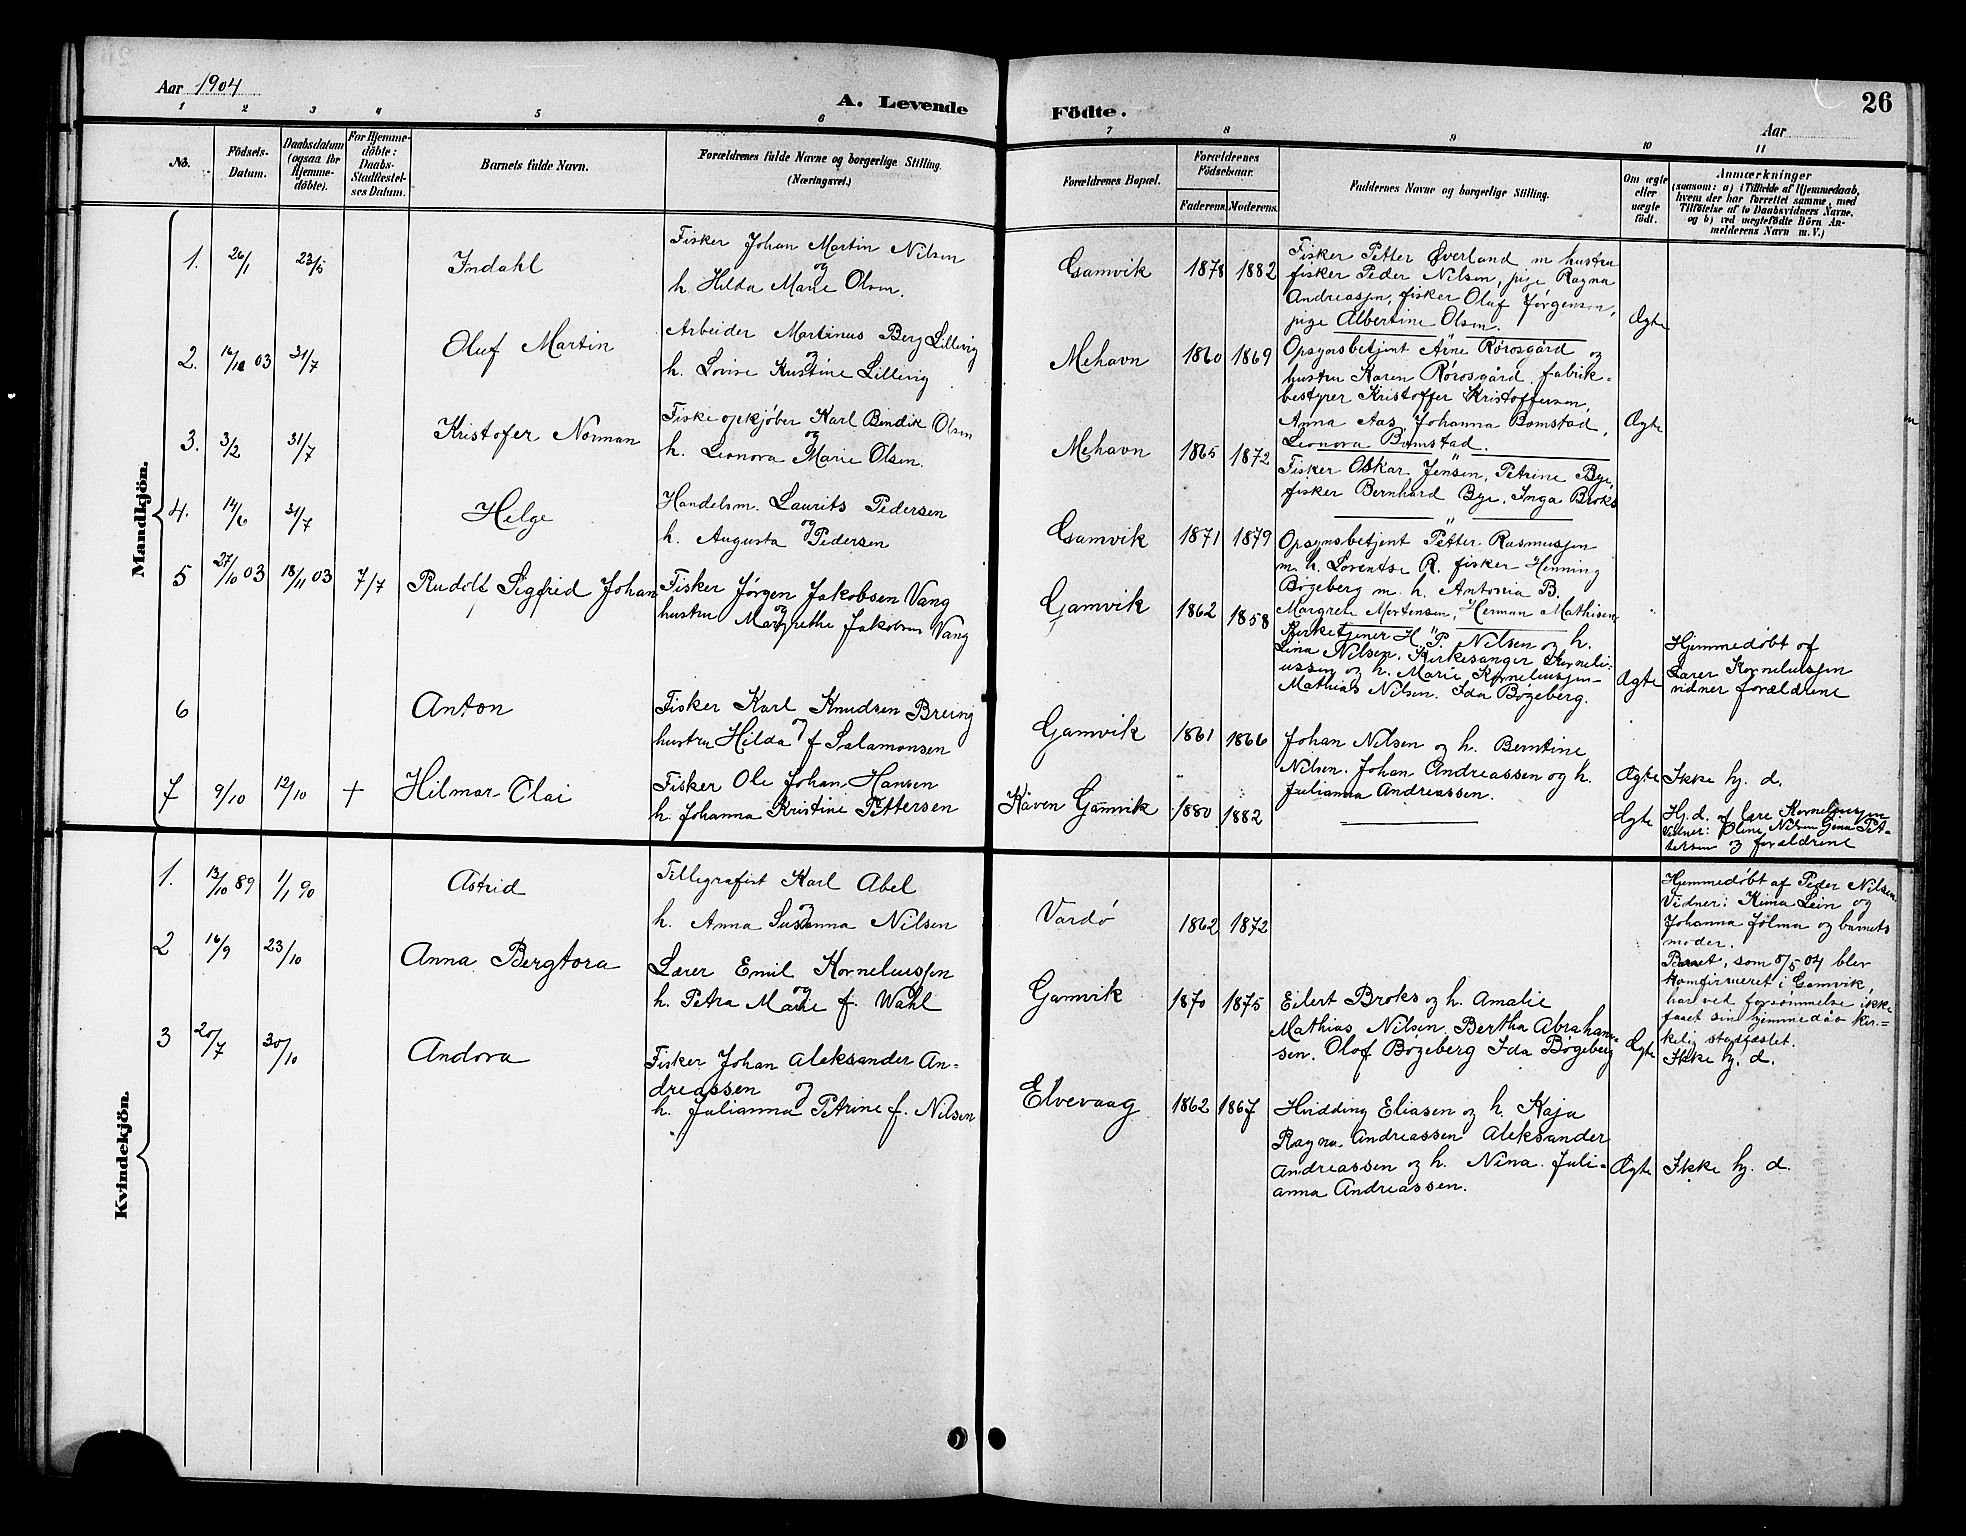 Aar 1904
A. Levende
Födte.
26
Aar
1 2 3 4 5 6 7 8 9 10 11
No.
Födsels-
Datum.
Daabsdatum
(ogsaa for
Hjemme-
döbte).
For Hjemme-
döbte:
Daabs-
Stadfæstel-
ses Datum.
Barnets fulde Navn.
Forældrenes fulde Navne og borgerlige Stilling.
(Næringsvei.)
Forældrenes Bopæl.
Forældrenes
Födselsaar.
Faderens. Moderens.
Faddernes Navne og borgerlige Stilling.
Om ægte
eller
uægte
födt.
Anmærkninger
(saasom: a) i Tilfælde af Hjemmedaab,
hvem der har forrettet samme, med
Tilföielse af to Daabsvidners Navne,
og b) ved uægtefödte Börn An-
melderens Navn m. V.)
Mandkjön.
1. 26/1 23/5 Indahl
Fisker Johan Martin Nilsen
og
h. Hilda Marie Olsen.
Gamvik 1878 1882
Fisker Petter Øverland m hustru
fisker Peder Nilsen, pige Ragna
Andreasjen, fisker Oluf Jørgensen,
pige Albertine Olsen.
Ægte
2. 31/7 Oluf Martin
Arbeider Martinus Berg Lillevig
og
h. Lovise Kristine Lillevig
Mehavn 1860 1869
Opsynsbetjent Arne Rørosgård og
hustru Karen Rørosgård, fabrik-
bestyrer Kristoffer Kristoffersen,
Anna Aas, Johanna Bomstad,
Leonora Bomstad.
Ægte
3. 3/2 31/7 Kristofer Norman
Fiskeopkjøber Karl Bendik Olsen
og
h. Leonora Marie Olsen.
Mehavn 1865 1872
Fisker Oskar Jensen, Petrine Bye,
fisker Bernhard Bye, Inga Broks
"
4. 14/6 31/7 Helge
Handelsm. Laurits Pedersen
og
h. Augusta Pedersen
Gamvik 1871 1879
Opsynsbetjent Petter Rasmusjen
m. h. Lorentse R. fisker Henning
Bøgeberg m. h. Antonia B.
Margrete Mortensen, Herman Mathisen
"
5 27/10 03 18/11 03 7/7 Rudolf Sigfrid Johan
Fisker Jørgen Jakobsen Vang
og
hustru Margrethe Jakobsen Vang
Gamvik 1862 1858
Kirketjener H. P. Nilsen og h.
Lina Nilsen. Kirkesanger Korneli-
ussen og h. Marie Korneliussen
Mathias Nilsen. Ida Bøgeberg.
Ægte
Hjemmedøbt af
Lærer Korneliussjen
vidner forældrene
6 Anton
Fisker Karl Knudsen Breivig
og
hustru Hilda f Salamonsen
Gamvik 1861 1866
Johan Nilsen og h. Berntine
Nilsen. Johan Andreassen og h.
Julianna Andreassen.
Ægte Ikke hj. d.
7 9/10 12/10 + Hilmar Olai
Fisker Ole Johan Hansen
h. Johanna Kristine Pettersen
Gamvik 1880 1882
Ægte
Hj. d. af lære Korneliussjen
Vidner: Oline Nilsen Gina Pet-
tersen og forældrene
Kvindekjön.
1. 13/10 89 1/1 90 Astrid
Tellegrafist Karl Abel
og
h. Anna Susanna Nilsen
Vardø 1862 1872
Hjemmedøbt af Peder Nilsen
Vidner: Kima Lein og
Johanna Jølma og barnets
moder.
Barnet, som 8/5 04 blev
konfirmeret i Gamvik,
har ved forsømmelse ikke
faaet sin hjemmedåb kir-
kelig stadfæstet.
2 16/9 23/10 Anna Bergtora
Lærer Emil Korneliussjen
og
h. Petra Marie f. Wahl
Gamvik 1870 1875
Eilert Broks og h. Amalie
Mathias Nilsen. Bertha Abraham-
sen. Olof Bøgeberg Ida Bøgeberg
Ægte Ikke hj. d.
3 20/7 30/10 Andora
Fisker Johan Aleksander An-
dreassen
og
h. Julianna Petrine f. Nilsen
Elvevaag 1862 1867
Hvidding Eliasen og h. Kaja
Ragna Andreassen Aleksander
Andreassen og h. Nina. Juli-
anna Andreassen.
Ægte Ikke hj. d.